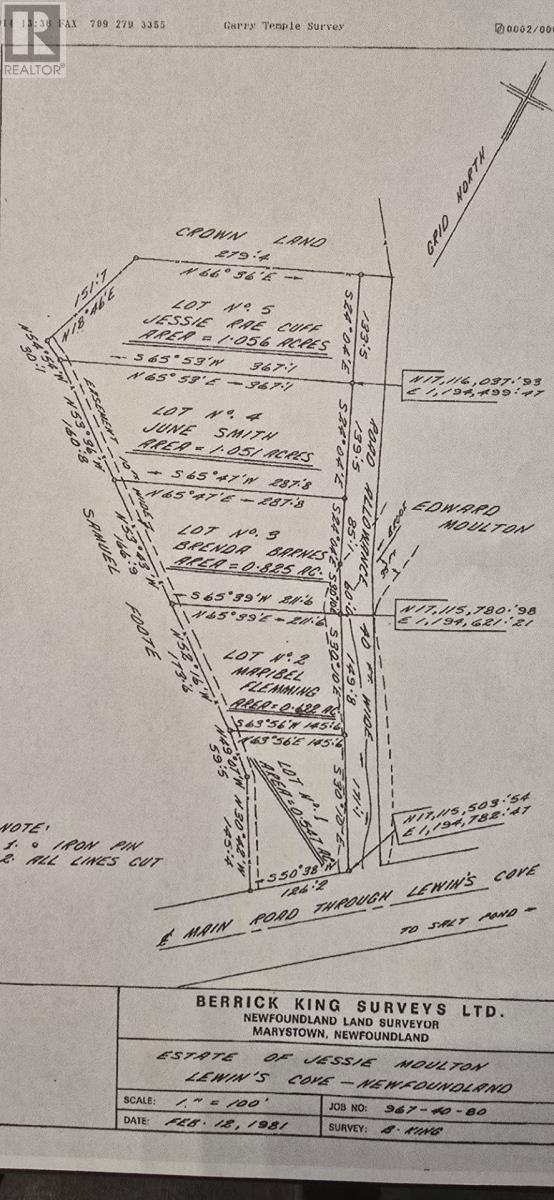 14 13:38 FAX 709 279 3355
Garry Temple Survey
0002/00
REALTOR®
GRID NORTH
CROWN LAND
279.4
N 66° 36' E →
151.7
N 18° 46' E
LOT No. 5
JESSIE RAE CUFF
AREA = 1.056 ACRES
S 24° 04' E
133.5
← S 65° 53' W 367.1
N 65° 53' E → 367.1
N 17,116,037.93
E 1,194,499.47
EASEMENT 10 FT WIDE
160.8
LOT No. 4
JUNE SMITH
AREA = 1.051 ACRES
S 24° 04' E
139.5
← S 65° 47' W 287.8
N 65° 47' E → 287.8
ROAD ALLOWANCE 40 FT WIDE
EDWARD
MOULTON
BROOK
SAMUEL FOOTE
LOT No. 3
BRENDA BARNES
AREA = 0.825 AC.
S 24° 04' E
85.1
60.0
← S 65° 39' W 211.6
N 65° 39' E → 211.6
N 17,115,780.98
E 1,194,621.21
N 52° 16' W
173.6
LOT No. 2
MARIBEL
FLEMMING
AREA = 0.622 AC.
S 30° 10' E
149.8
S 63° 56' W 145.6
N 63° 56' E 145.6
59.5
N 30° 42' W
145.4
LOT No. 1
AREA = 0.547 AC.
S 30° 10' E
171.1
N 17,115,503.54
E 1,194,782.47
NOTE:
1. o IRON PIN
2. ALL LINES CUT
← S 50° 38' W
126.2
℄ MAIN ROAD THROUGH LEWIN'S COVE
TO SALT POND →
BERRICK KING SURVEYS LTD.
NEWFOUNDLAND LAND SURVEYOR
MARYSTOWN, NEWFOUNDLAND
ESTATE OF JESSIE MOULTON
LEWIN'S COVE — NEWFOUNDLAND
SCALE: 1" = 100'
JOB NO: 967-40-80
DATE: FEB. 12, 1981
SURVEY: B. KING